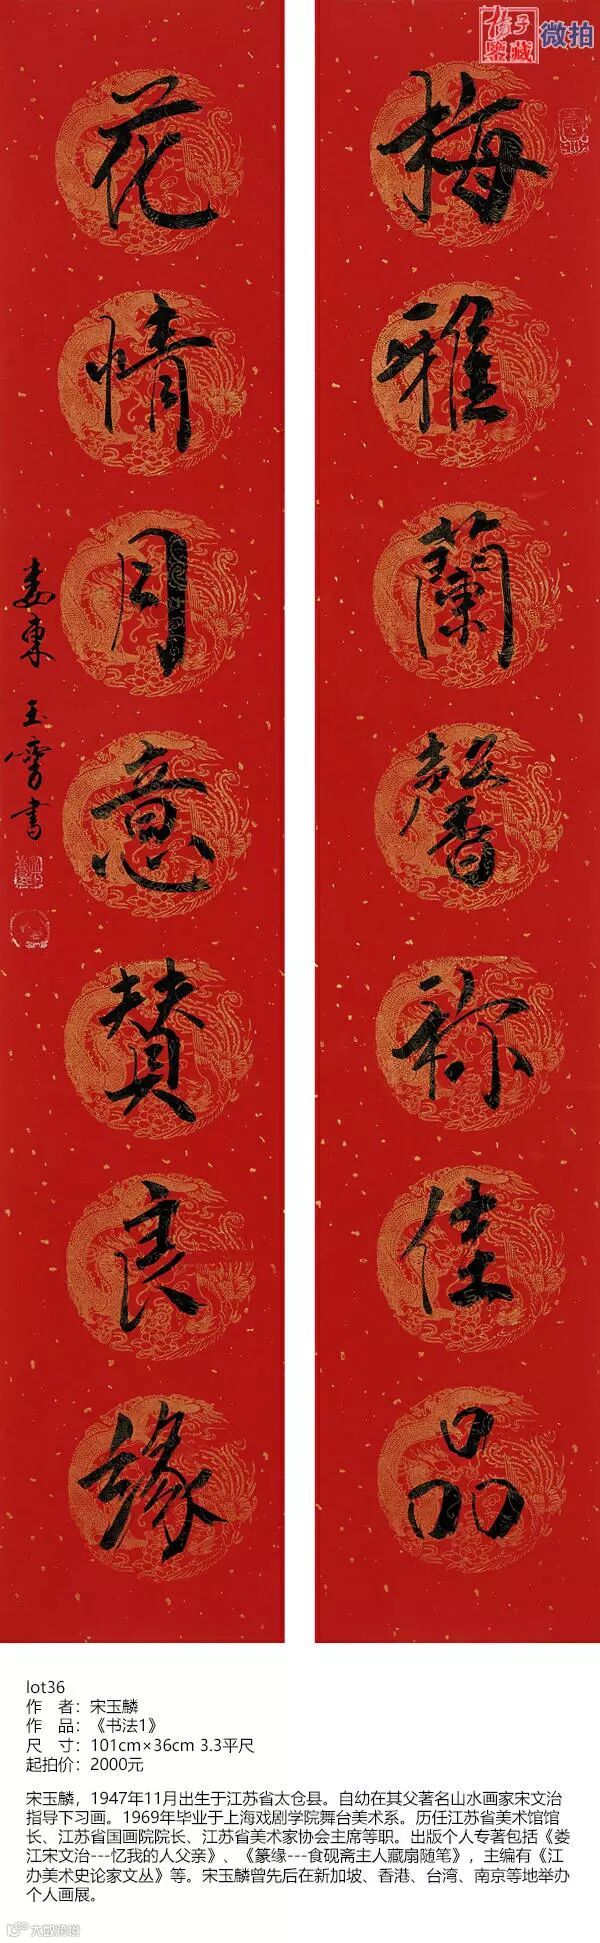 扬子
鑒藏
微拍
梅雅蘭馨称佳品
花情月意賛良緣
婁東 玉 書
lot36
作 者：宋玉麟
作 品：《书法1》
尺 寸：101cm×36cm 3.3平尺
起拍价：2000元
宋玉麟，1947年11月出生于江苏省太仓县。自幼在其父著名山水画家宋文治
指导下习画。1969年毕业于上海戏剧学院舞台美术系。历任江苏省美术馆馆
长、江苏省国画院院长、江苏省美术家协会主席等职。出版个人专著包括《娄
江宋文治---忆我的人父亲》、《篆缘---食砚斋主人藏扇随笔》，主编有《江
办美术史论家文丛》等。宋玉麟曾先后在新加坡、香港、台湾、南京等地举办
个人画展。
大数跨境